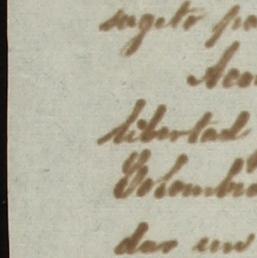 sugeto po
Aco
libertad
Colombia
dar un